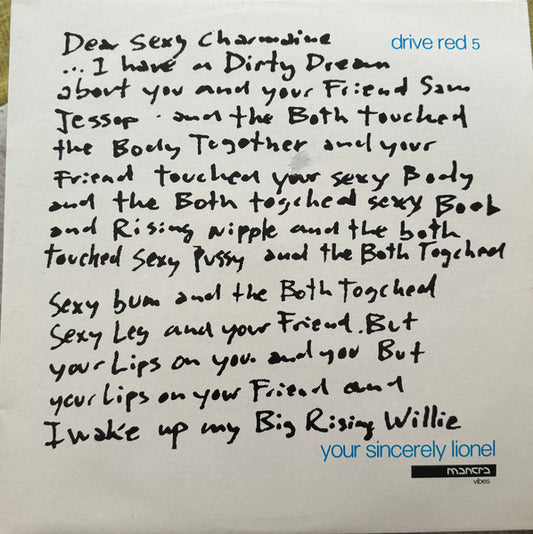 drive red 5
Dear Sexy Charmaine
... I have a Dirty Dream
about you and your Friend Sam
Jessop. and the Both touched
the Body Together and your
Friend touched your sexy Body
and the Both togched sexy Boob
and Rising nipple and the both
touched sexy Pussy and the Both Togched
sexy bum and the Both Togched
Sexy Leg and your Friend. But
your Lips on you. and you But
your Lips on your Friend and
I wake up my Big Rising Willie
your sincerely lionel
mantra
vibes